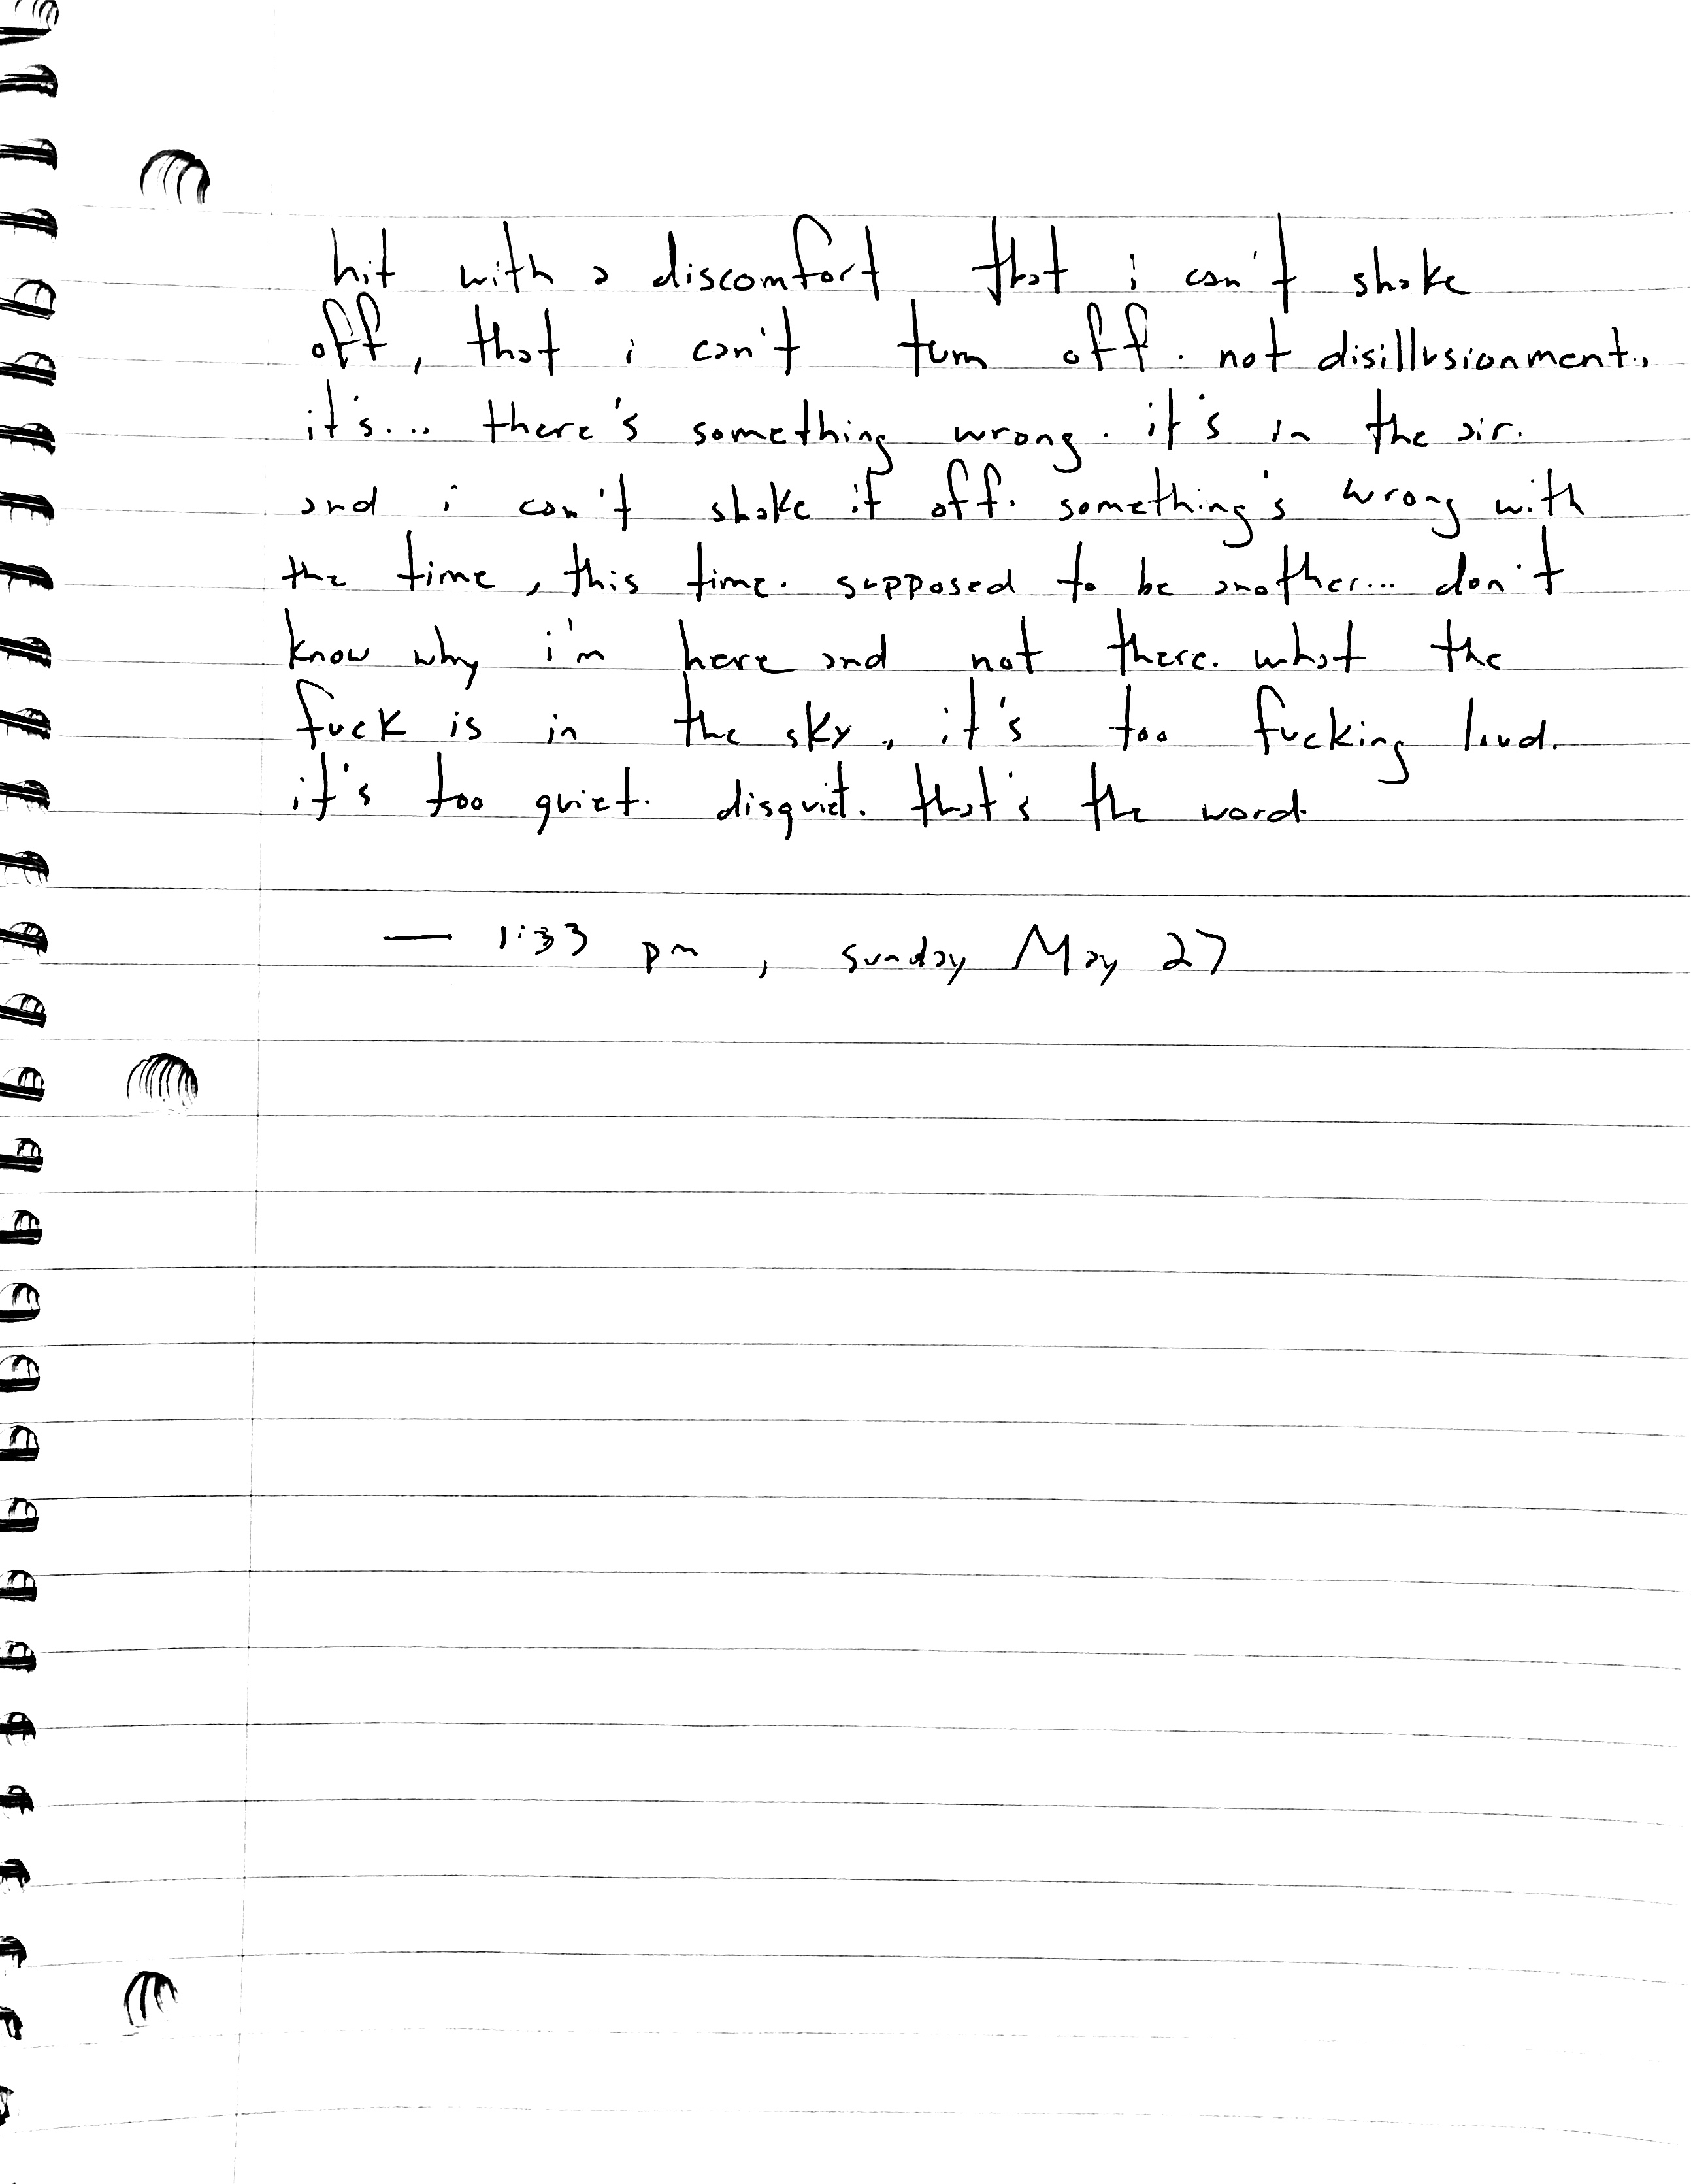 hit with a discomfort that i can't shake
off, that i can't turn off. not disillusionment.,
it's... there's something wrong. it's in the air.
and i can't shake it off. something's wrong with
the time, this time. supposed to be another... don't
know why i'm here and not there. what the
fuck is in the sky, it's too fucking loud.
it's too quiet. disquiet. that's the word.
— 1:33 pm, sunday May 27